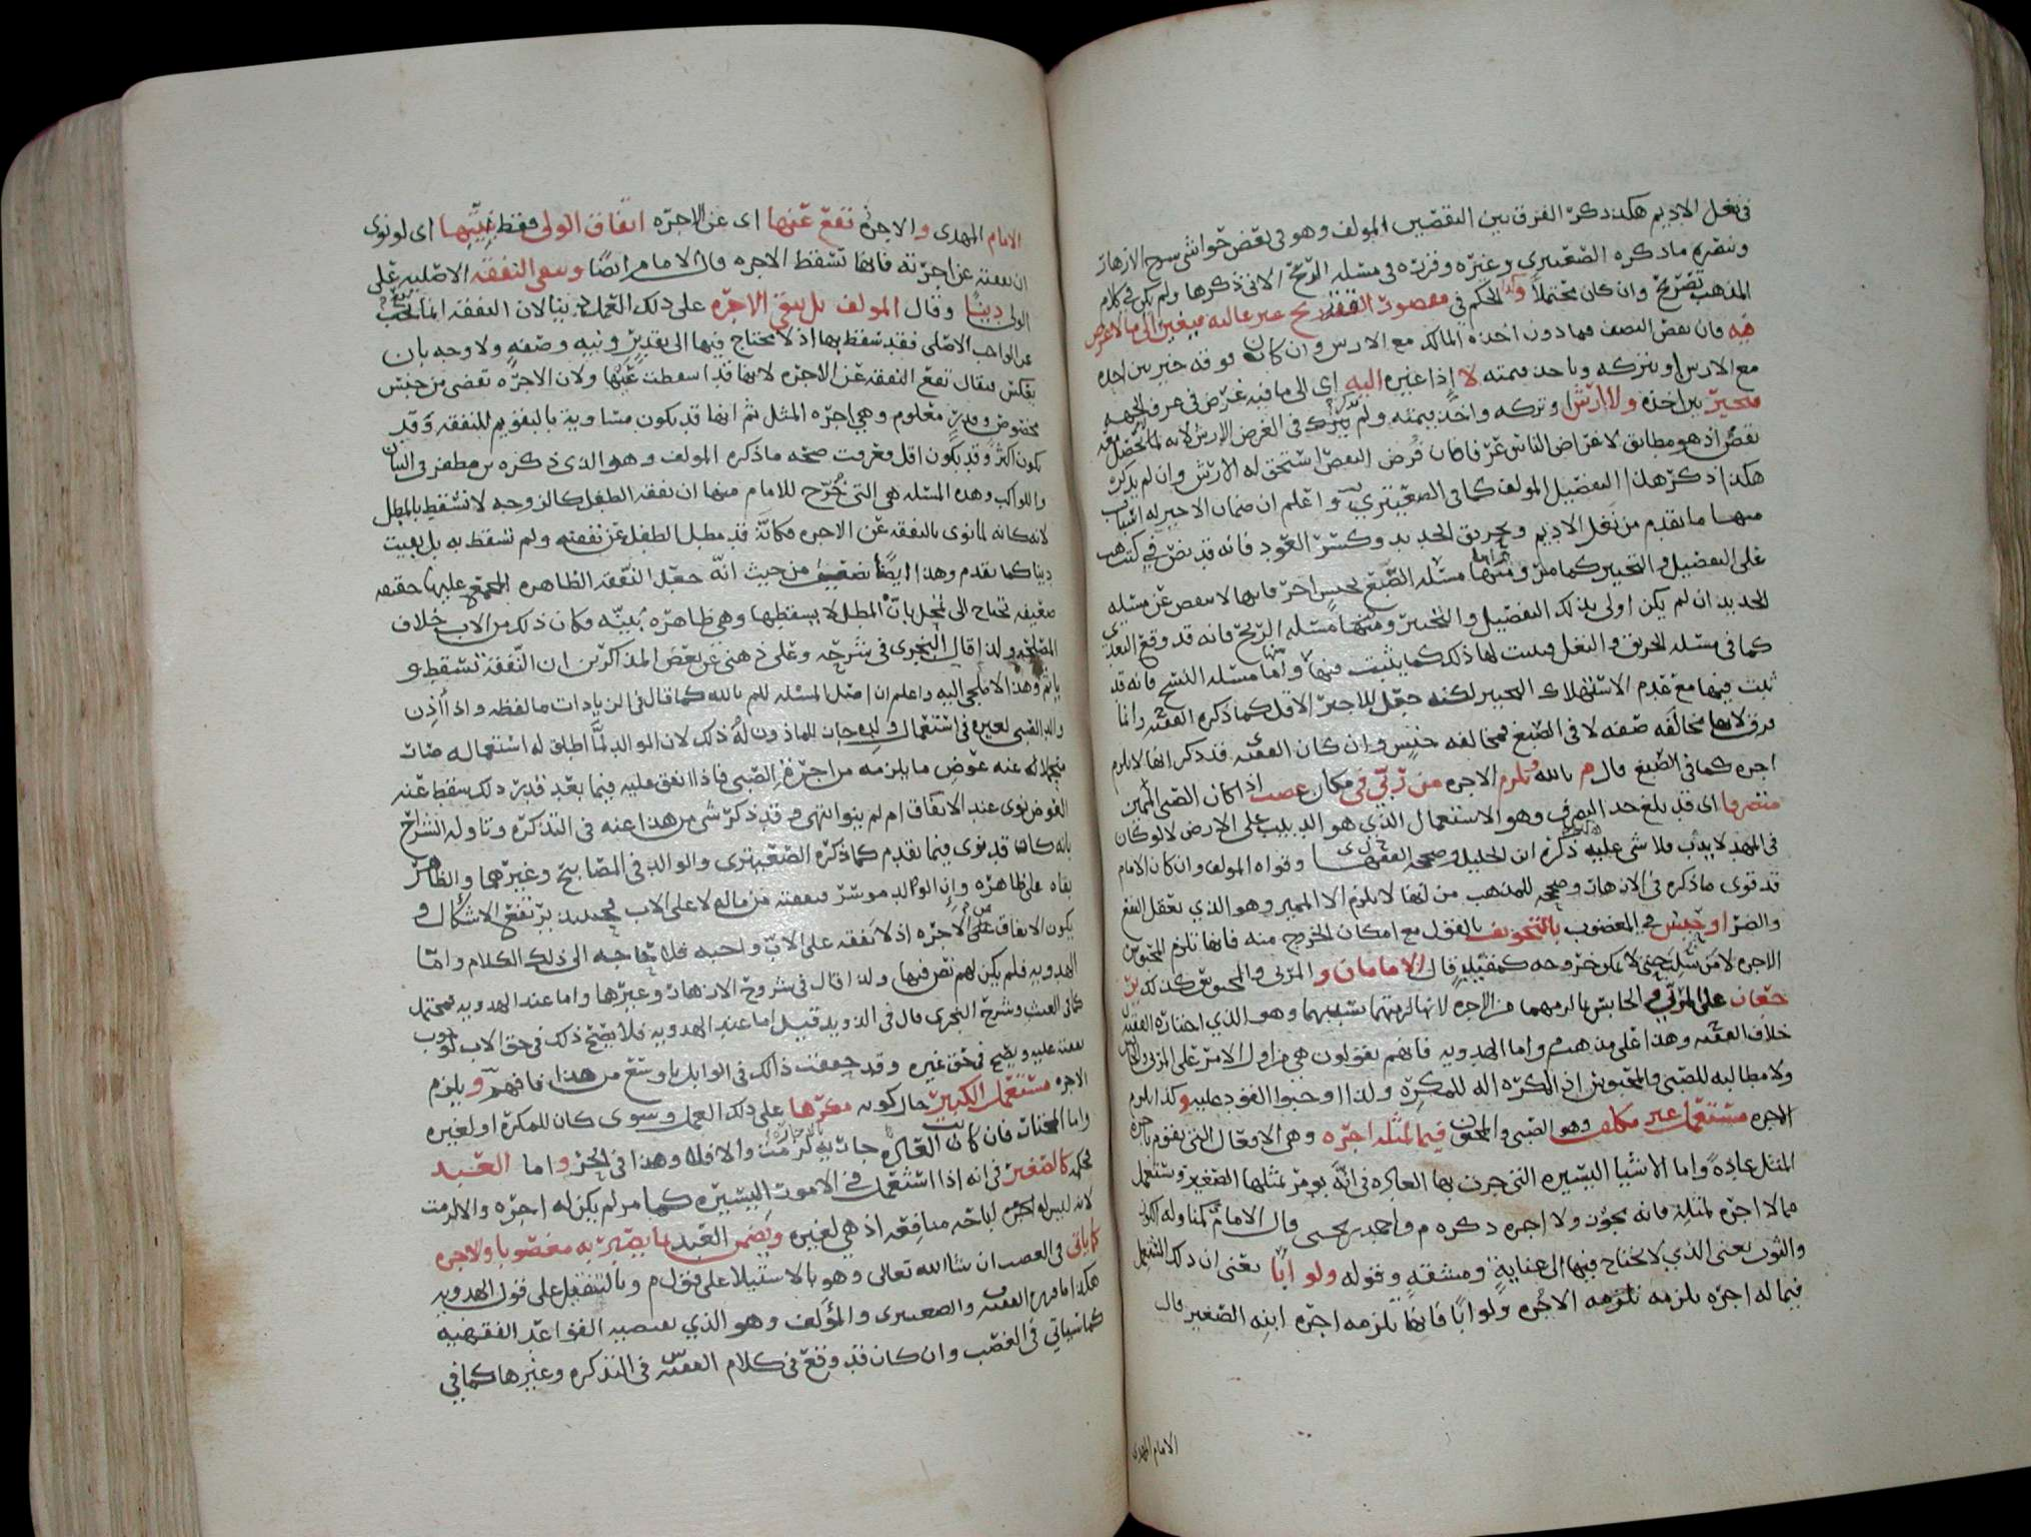 في نعل الاديم هكذا ذكر الفرق بين النقصين المولف وهو في بعض حواشي شرح الازهار
وتقرير ما ذكره الصعيتري وغيره وقرره في مسئله الريح الاتي ذكرها ولم يكن في كلام
المذهب تصريح وان كان محتملا وكذا الحكم في مقصود
فيه فان نقص النصف فما دون اخذه المالك مع الارش وان كان فوقه خير بين اخذه
مع الارش او يتركه وياخذ قيمته لا إذا غيره اليه اي الى ما فيه غرض في عرف الجهه
فيخير بين اخذه ولا ارش او تركه واخذ قيمته ولم يترك في الغرض الارش لانه لما
نقص اذ هو مطابق لاغراض الناس غرفا فان فرض النقص استحق له الارش وان لم يذكره
هكذا ذكر هذا التفصيل المولف كما في الصعيتري واعلم ان ضمان الاجير له اسباب
منها ما تقدم من نغل الاديم وتحريق الحديد وكسر العود فانه قد نص في كتبهم
على التفصيل والتخيير كما مر ومنها مسئله الصبغ بجنس اخر فانها لا تنقص عن مسئله
الحديد ان لم يكن اولى بذلك التفصيل والتخيير ومنها مسئله الريح فانه قد وقع التعدي
كما في مسئله الحريق والنغل فيثبت لها ذلك كما يثبت فيهما واما مسئله النسج فانه قد
ثبت فيها مع عدم الاستهلاك التخيير لكنه جعل للاجير الاقل كما ذكره الفقيه وانما
فرق لانها مخالفه صفه لا في الصبغ فمخالفه جنس وان كان الفقيه قد ذكر انها لا يلزم
اجره كما في الصبغ قال م بالله وتلزم الاجره من رُبّي في مكان غصب اذا كان الصبي المميز
متصرفا اي قد بلغ حد التصرف وهو الاستعمال الذي هو الدبيب على الارض لا لو كان
في المهد لا يدب فلا شي عليه ذكره ابن الخليل وصححه الفقهـا وقواه المولف وان كان الامام
قد قوى ما ذكره في الازهار وصحح للمذهب من انها لا يلزم الا المميز وهو الذي يعقل النفع
والضر او حبس فيه المغضوب بالتخويف بالقول مع امكان الخروج منه فانها تلزم المحبوس
الاجره لا من حتى لا يمكن خروجه كمقيد قال الامامان و المربى والمحبوس كذلك ير
جعان على المربي والحابس بما لزمهما من الاجره لانها لزمتهما بسببهما وهو الذي اختاره الفقيه
خلاف الفقيه وهذا على مذهب م واما الهدويه فانهم يقولون هي من اول الامر على المربي والحابس
ولا مطالبه للصبي والمحبوس اذ المكره اله للمكره ولذا اوجبوا القود عليه وكذا يلزم
الاجره مستعمل غير مكلف وهو الصبي والمجنون فيما لمثله اجره وهي الافعال التي يقوم باجره
المثل عادةً واما الاشيا اليسيره التي جرت بها العاده في انه يومر بمثلها الصغير ويستعمل
مما لا اجره لمثله فانه يجوز ولا اجره ذكره م واحمد بن يحيى قال الامام كمناوله الكوز
والثوب يعني الذي لا يحتاج فيها الى عناية ومشقة وقوله ولو ابًا يعني ان ذلك المستعمل
فيما له اجره يلزمه تلزمه الاجره ولو ابًا فانها تلزمه اجره ابنه الصغير قال
الامام المهدي
الامام المهدى والاجره تقع عنها اى عن الاجره انفاق الولى فقط بنيتها اى لو نوى
ان نفقته عن اجرته فانها تسقط الاجره قال الامام ايضا وتبقى النفقه الاصليه على
الولي دينا وقال المولف بل تبقى الاجره على ذلك العمل دينا لان النفقه انما تجب
عن الواجب الاصلي فقد سقط بها اذ لا يحتاج فيها الى تقدير ونيه وصفه ولا وجه بان
يعكس فيقال تقع النفقه عن الاجره لانها قد اسقطت عنها ولان الاجره تقضى من جنس
مخصوص وقدر معلوم وهي اجره المثل ثم انها قد يكون مساويه بالتقويم للنفقه وقد
يكون اكثر وقد يكون اقل فعرفت صحه ما ذكره المولف وهو الذي ذكره بن مظفر في البيان
والكواكب وهذه المسئله هي التي خُرّج للامام منها ان نفقه الطفل كالزوجه لا تسقط بالمطل
لانه كانه لما نوى بالنفقه عن الاجره فكانه قد مطل الطفل عن نفقته ولم تسقط به بل بقيت
دينا كما تقدم وهذا ايضًا تضعيف من حيث انّه جعل النفقه الظاهره المجمع عليها حقيقه
ضعيفه تحتاج الى تمحل بانّ المطل لا يسقطها وهي ظاهره بُنيّه وكان ذلك من الاب خلاف
المصلحه ولذا قال النجرى في شرحه وعلى ذهني عن بعض المذاكرين ان النفقه تسقط و
ياثم وهذا الا ملجي اليه واعلم ان اصل المسئله للم بالله كما قال في الزيادات ما لفظه واذا أذِن
والد الصبي لغيره في استعمال ولده جاز للماذون لهُ ذلك لان الوالد لمّا اطلق له استعماله صار
متحملا له عنه عوض ما يلزمه من اجره الصبي فاذا انفق عليه فيما بعد قدر ذلك سقط عنه
العوض نوى عند الانفاق ام لم ينوا انتهى وقد ذكر شي من هذا عنه في التذكره وتاوله الشراح
بانه كان قد نوى فيما تقدم كما ذكره الصعيتري والوالد في المصابيح وغيرهما والظاهر
بقاه على ظاهره وان الوالد موسر فنفقته من ماله لا على الاب فحينئذ يرتفع الاشكال و
يكون الانفاق على الاجره اذ لا نفقه على الاب واجبه فلا حاجه الى ذلك الكلام وامّا
الهدويه فلم يكن لهم نص فيها ولذا قال في شروح الازهار وغيرها واما عند الهدويه فمحتمل
كما في الغيث وشرح النجرى قال في الزويد قيل اما عند الهدويه فلا يصح ذلك في حق الاب لوجوب
نفقته عليه ويصح في حق غيره وقد حققت ذلك في الوابل باوسع من هذا فافهم ويلزم
الاجره مستعمل الكبير حال كونه مكرها على ذلك العمل وسوى كان للمكره او لغيره
واما المحتار فان كانت العاده جاريه لزمت والا فلا وهذا في الحر واما العبد
فحكمه كالصغير في انه اذا استعمل في الامور اليسيره كما مر لم يكن له اجره والا لزمت
لانه ليس له اباحه منافعه اذ هي لغيره ويضمن العبد بما يصير به مغصوبا والاجره
كما ياتي في الغصب ان شا الله تعالى وهو بالاستيلا على قول م وبالتنقيل على قول الهدويه
هكذا ما قرره الفقيه والصعيتري والمؤلف وهو الذي تقتضيه القواعد الفقهيه
كما سياتي في الغصب وان كان قد وقع في كلام الفقيه في التذكره وغيرها كما في